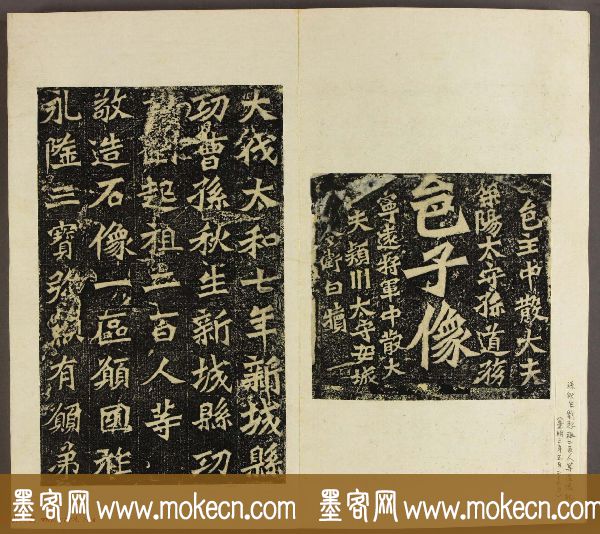 邑主中散大夫
滎陽太守孫道務
邑子像
寧遠將軍中散大
夫頴川太守安城
令衛白犢
大伐太和七年新城縣
功曹孫秋生新城縣功
劉起祖二百人等
敬造石像一區願國祚
永隆三寶弥顯有願弟
孫秋生劉起祖二百人等造像
墨客网 www.mokecn.com 墨客网 www.mokecn.com